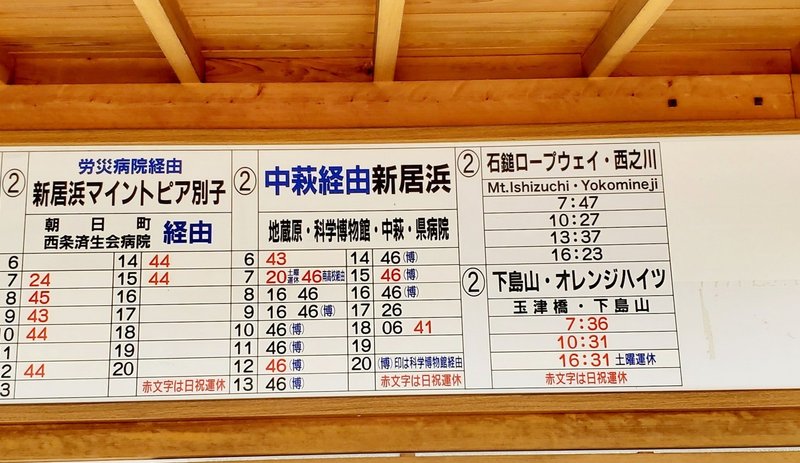 ②
労災病院経由
新居浜マイントピア別子
朝日町
西条済生会病院 経由
6 14 44
7 24 15 44
8 45 16
9 43 17
10 44 18
1 19
2 44 20
3 赤文字は日祝運休
②
中萩経由新居浜
地蔵原・科学博物館・中萩・県病院
6 43 14 46(博)
7 20土曜運休 46南高校経由 15 46(博)
8 16 46 16 46(博)
9 16 46(博) 17 26
10 46(博) 18 06 41
11 46(博) 19
12 46(博) 20 (博)印は科学博物館経由
13 46(博) 赤文字は日祝運休
②
石鎚ロープウェイ・西之川
Mt.Ishizuchi・Yokomineji
7:47
10:27
13:37
16:23
②
下島山・オレンジハイツ
玉津橋・下島山
7:36
10:31
16:31 土曜運休
赤文字は日祝運休